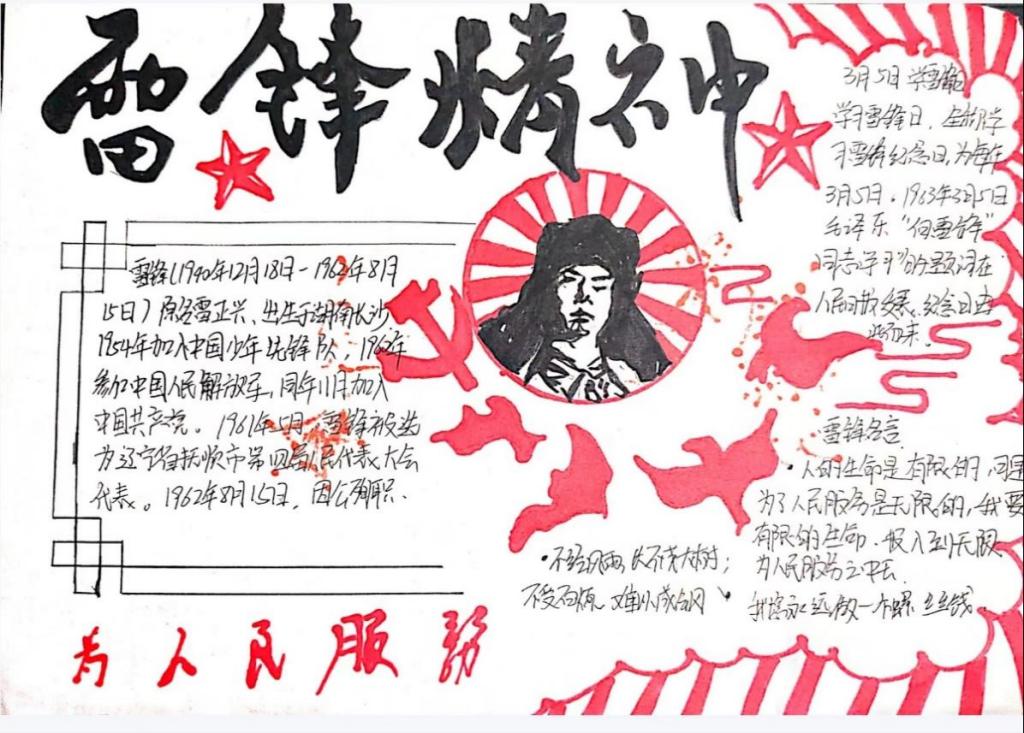 雷锋精神
雷锋(1940年12月18日-1962年8月
15日)原名雷正兴、出生于湖南长沙,
1954年加入中国少年先锋队,1960年
参加中国人民解放军,同年11月加入
中国共产党。1961年5月,雷锋被选
为辽宁省抚顺市第四届人民代表大会
代表。1962年8月15日,因公殉职.
为人民服务
3月5日 学雷锋
学习雷锋日,全称学
习雷锋纪念日,为每年
3月5日,1963年3月5日
毛泽东“向雷锋”
同志学习”的题词在
人民日报发表,纪念日由
此而来.
雷锋名言
·人的生命是有限的,可是
为了人民服务是无限的,我要
有限的生命.投入到无限
为人民服务之中去
我愿永远做一个螺丝线.
·不经风雨,长不成大树;
不受百炼,难以成钢